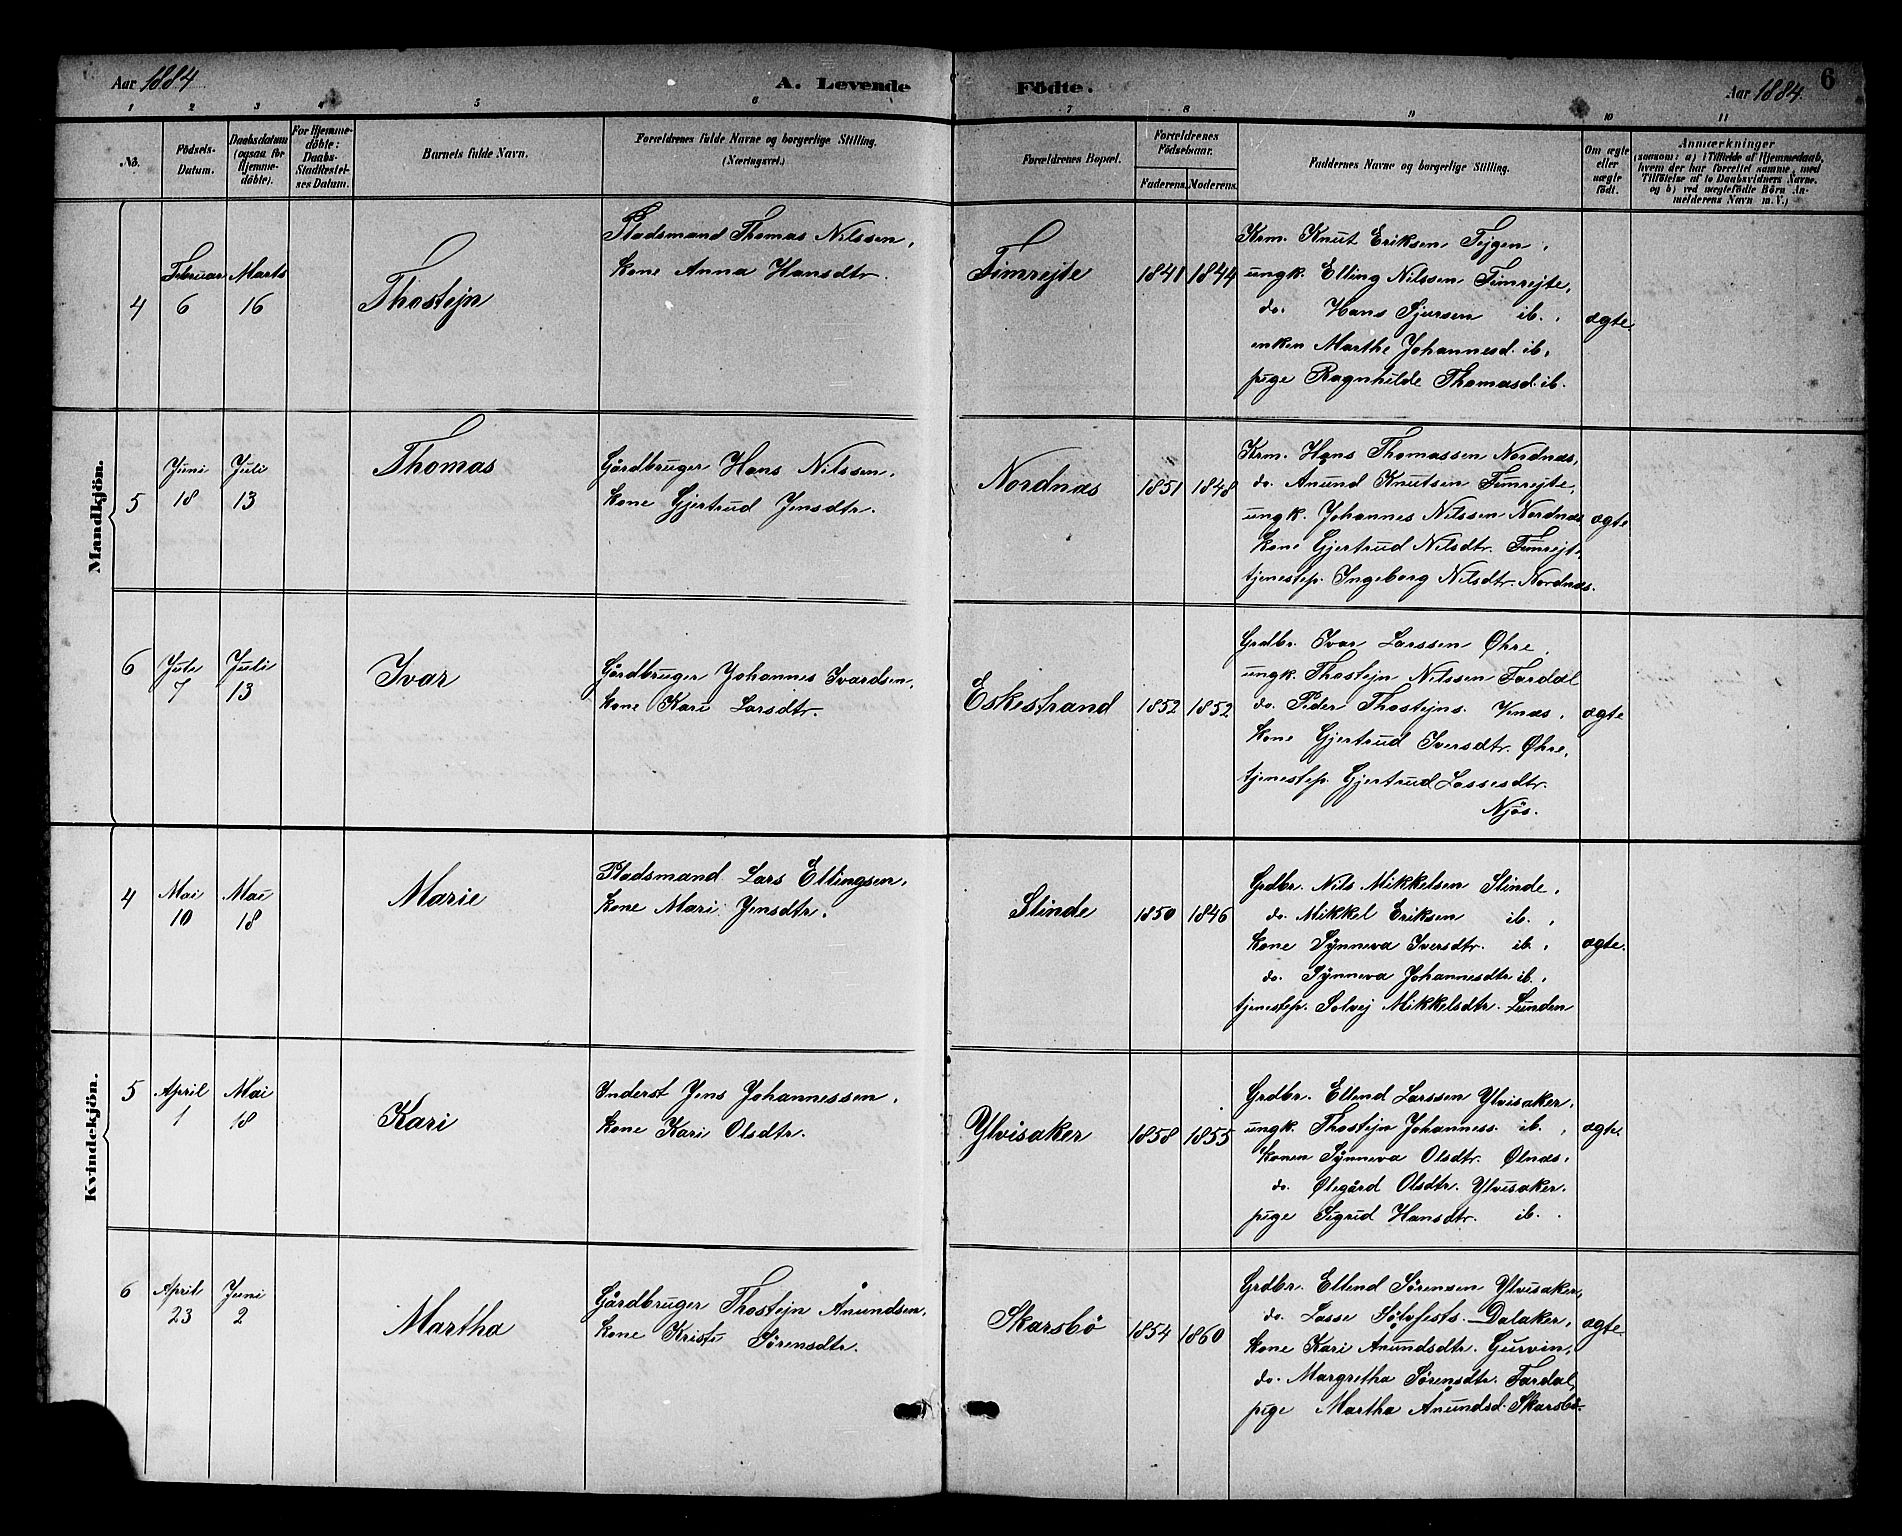 Aar 1884
A. Levende Födte.
Aar 1884.
6
1 2 3 4 5 6 7 8 9 10 11
No.
Födsels-
Datum.
Daabsdatum
(ogsaa for
Hjemme-
døbte).
For Hjemme-
døbte:
Daabs-
Stadfæstel-
ses Datum.
Barnets fulde Navn.
Forældrenes fulde Navne og borgerlige Stilling.
(Næringsvei.)
Forældrenes Bopæl.
Forældrenes
Födselsaar.
Faderens. Moderens.
Faddernes Navne og borgerlige Stilling.
Om ægte
eller
uægte
født.
Anmærkninger
(saasom: a) i Tilfælde af Hjemmedaab,
hvem der har forrettet samme, med
Tilföielse af to Daabsvidners Navne,
og b) ved uægtefødte Börn An-
melderens Navn m. V.)
Mandkjön.
4
Februar
6
Marts
16
Thostejn
Pladsmand Thomas Nilssen,
kone Anna Hansdtr.
Timrejte
1841 1844
Krm. Knut Eriksen Fejgen,
ungk. Elling Nilssen Timrejte,
do. Hans Sjursen ib.,
enken Marthe Johannesd. ib.
pige Ragnhilde Thomasd. ib.
ægte.
5
Juni
18
Juli
13
Thomas
Gårdbruger Hans Nilssen,
kone Gjertrud Jensdtr.
Nordnæs
1851 1848
Krm. Hans Thomassen Nordnæs,
do. Anund Knutsen Timrejte,
ungk. Johannes Nilssen Nordnæs
kone Gjertrud Nilsdtr. Timrejt.,
tjenestep. Ingeborg Nilsdtr. Nordnæs.
ægte
6
Juli
7
Juli
13
Ivar
Gårdbruger Johannes Ivardsen,
kone Kari Larsdtr.
Eskestrand
1852 1852
Grdbr. Ivar Larssen Øhre,
ungk. Thostejn Nilssen Fardal
do. Peder Thostejns. Venæs,
kone Gjertrud Iversdtr. Øhre,
tjenestep. Gjertrud Lassesdtr.
Njøs.
ægte
Kvindekjön.
4
Mai
10
Mai
18
Marie
Pladsmand Lars Ellingsen,
kone Mari Jensdtr.
Slinde
1850 1846
Grdbr. Nils Mikkelsen Slinde,
do. Mikkel Eriksen ib.,
kone Synneva Iversdtr. ib.,
do. Synneva Johannesdtr ib.,
tjenestep. Solvej Mikkelsdtr. Lunden
ægte.
5
April
1
Mai
18
Kari
Inderst Jens Johannessen,
kone Kari Olsdtr.
Ylvisaker
1858 1855
Grdbr. Ellend Larssen Ylvisaker,
ungk. Thostejn Johanness. ib.,
konen Synneva Olsdtr. Ølnæs,
do. Ølegård Olsdtr. Ylvisaker.
pige Sigrid Hansdtr. ib.
ægte.
6
April
23
Juni
2
Martha
Gårdbruger Thostejn Ånundsen,
kone Kristi Sørensdtr.
Skarsbö
1854 1860
Grdbr. Ellend Sørensen Ylvisaker,
do. Lasse Sølvfests. Dalaker,
kone Kari Anundsdtr. Gurvin,
do. Margretha Sørensdtr. Fardal,
pige Martha Ånundsd. Skarsbö.
ægte.